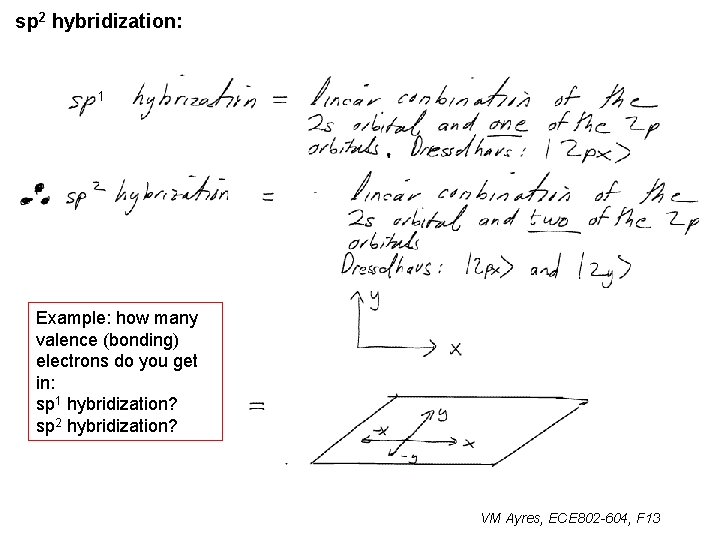 sp² hybridization:
sp¹ hybrization = linear combination of the
2s orbital and one of the 2p
orbitals. Dresselhaus: |2px>
∴ sp² hybrization = linear combination of the
2s orbital and two of the 2p
orbitals
Dresselhaus: |2px> and |2y>
y
x
Example: how many
valence (bonding)
electrons do you get
in:
sp¹ hybridization?
sp² hybridization?
=
y
-x x
-y
VM Ayres, ECE802-604, F13